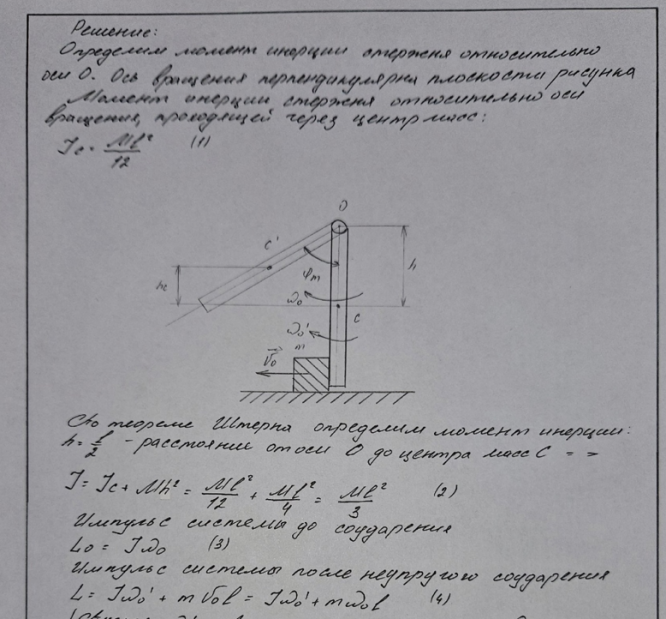 Решение:
Определим момент инерции стержня относительно
оси O. Ось вращения перпендикулярна плоскости рисунка
Момент инерции стержня относительно оси
вращения, проходящей через центр масс:
Jc = Ml²/12 (1)
O
C'
φm
h
hc
ω₀
C
ω₀'
m
V₀
По теореме Штерна определим момент инерции:
h = l/2 - расстояние от оси O до центра масс C = >
J = Jc + Mh² = Ml²/12 + Ml²/4 = Ml²/3 (2)
Импульс системы до соударения
L₀ = Jω₀ (3)
Импульс системы после неупругого соударения
L = Jω₀' + mV₀l = Jω₀' + mω₀l (4)